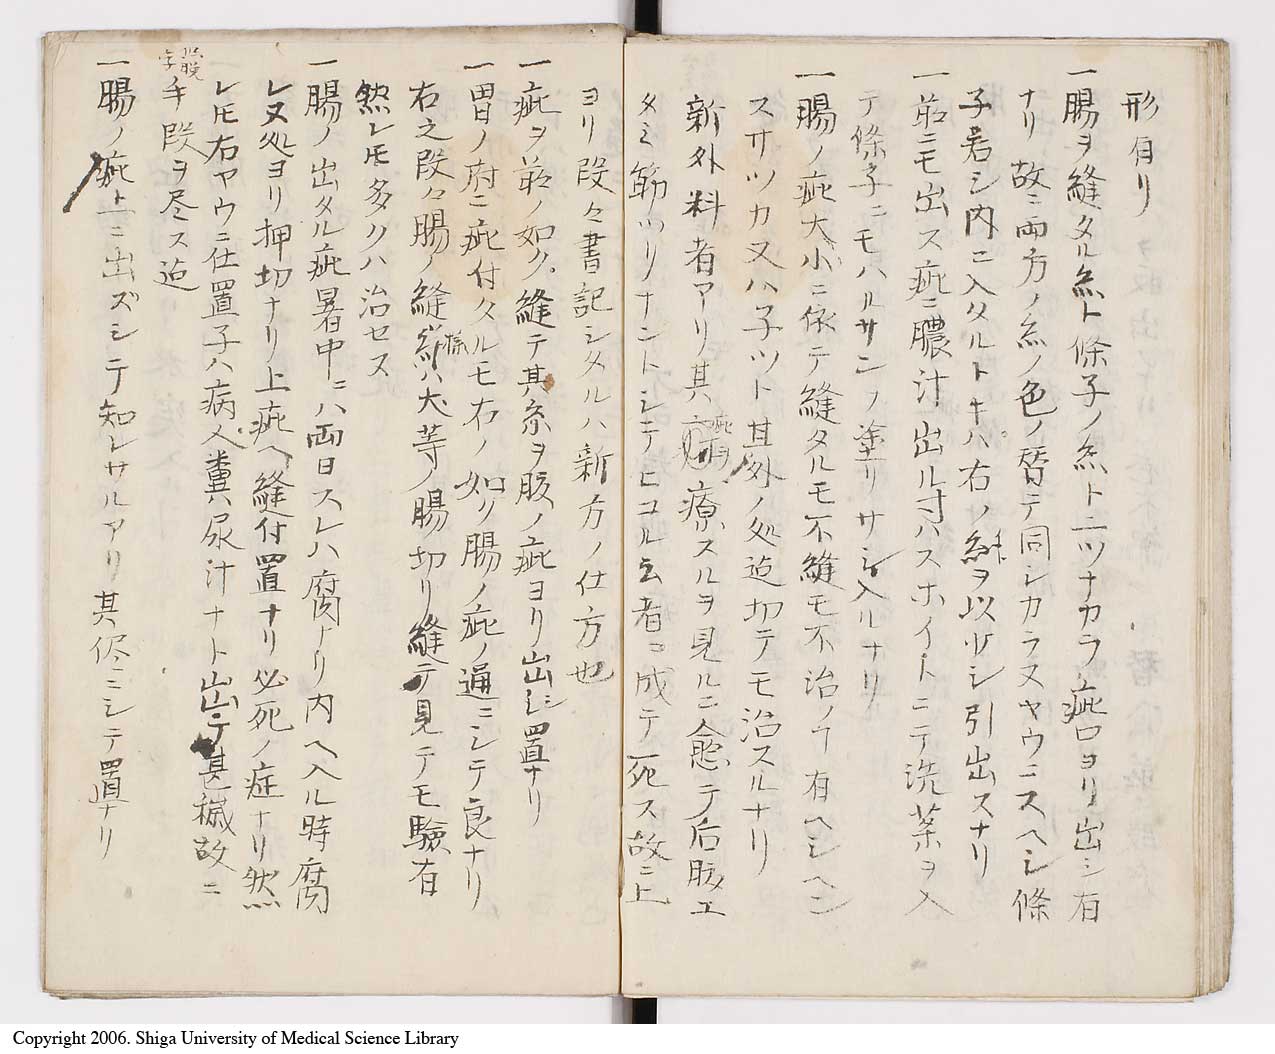 形有リ
一腸ヲ縫タル糸ト條子ノ糸ト二ツナカラ疵口ヨリ出シ有
ナリ故ニ両方ノ糸ノ色ノ替テ同シカラヌヤウニスヘシ條
子若シ内ニ入タルトキハ右ノ糸ヲ以少シ引出スナリ
一前ニモ出ス疵ニ膿汁出ル寸ハスホイトニテ洗薬ヲ入
テ條子ニモハルサンヲ塗リサシ入ルナリ
一腸ノ疵大小ニ依テ縫タルモ不縫モ不治ノ有ヘシヘシ
スサツカ又ハ子ツト其外ノ処迄切テモ治スルナリ
新外料者アリ其疵ヲ療スルヲ見ルニ愈テ后肢エ
タミ筋ツリナントシテヒコル云者ニ成テ死ス故ニ上
ヨリ段々書記シタルハ新方ノ仕方也
一疵ヲ前ノ如ク縫テ其糸ヲ肢ノ疵ヨリ出シ置ナリ
一胃ノ府ニ疵付タルモ右ノ如ク腸ノ疵ノ通ニシテ良ナリ
右之段々腸ノ縫様ハ犬等ノ腸切リ縫テ見テモ驗有
然レモ多クハ治セス
一腸ノ出タル疵暑中ニハ両日スレハ腐ナリ内ヘ入ル時腐
レヌ処ヨリ押切ナリ上疵ヘ縫付置ナリ必死ノ症ナリ然
レモ右ヤウニ仕置子ハ病人糞尿汁ナト出テ甚穢故ニ
手段ヲ尽ス迄
一腸ノ疵上ニ出ズシテ知レサルアリ其侭ニシテ置ナリ
Copyright 2006. Shiga University of Medical Science Library